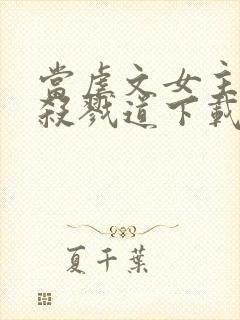 當虐文女主
殺戮道下載
夏千葉